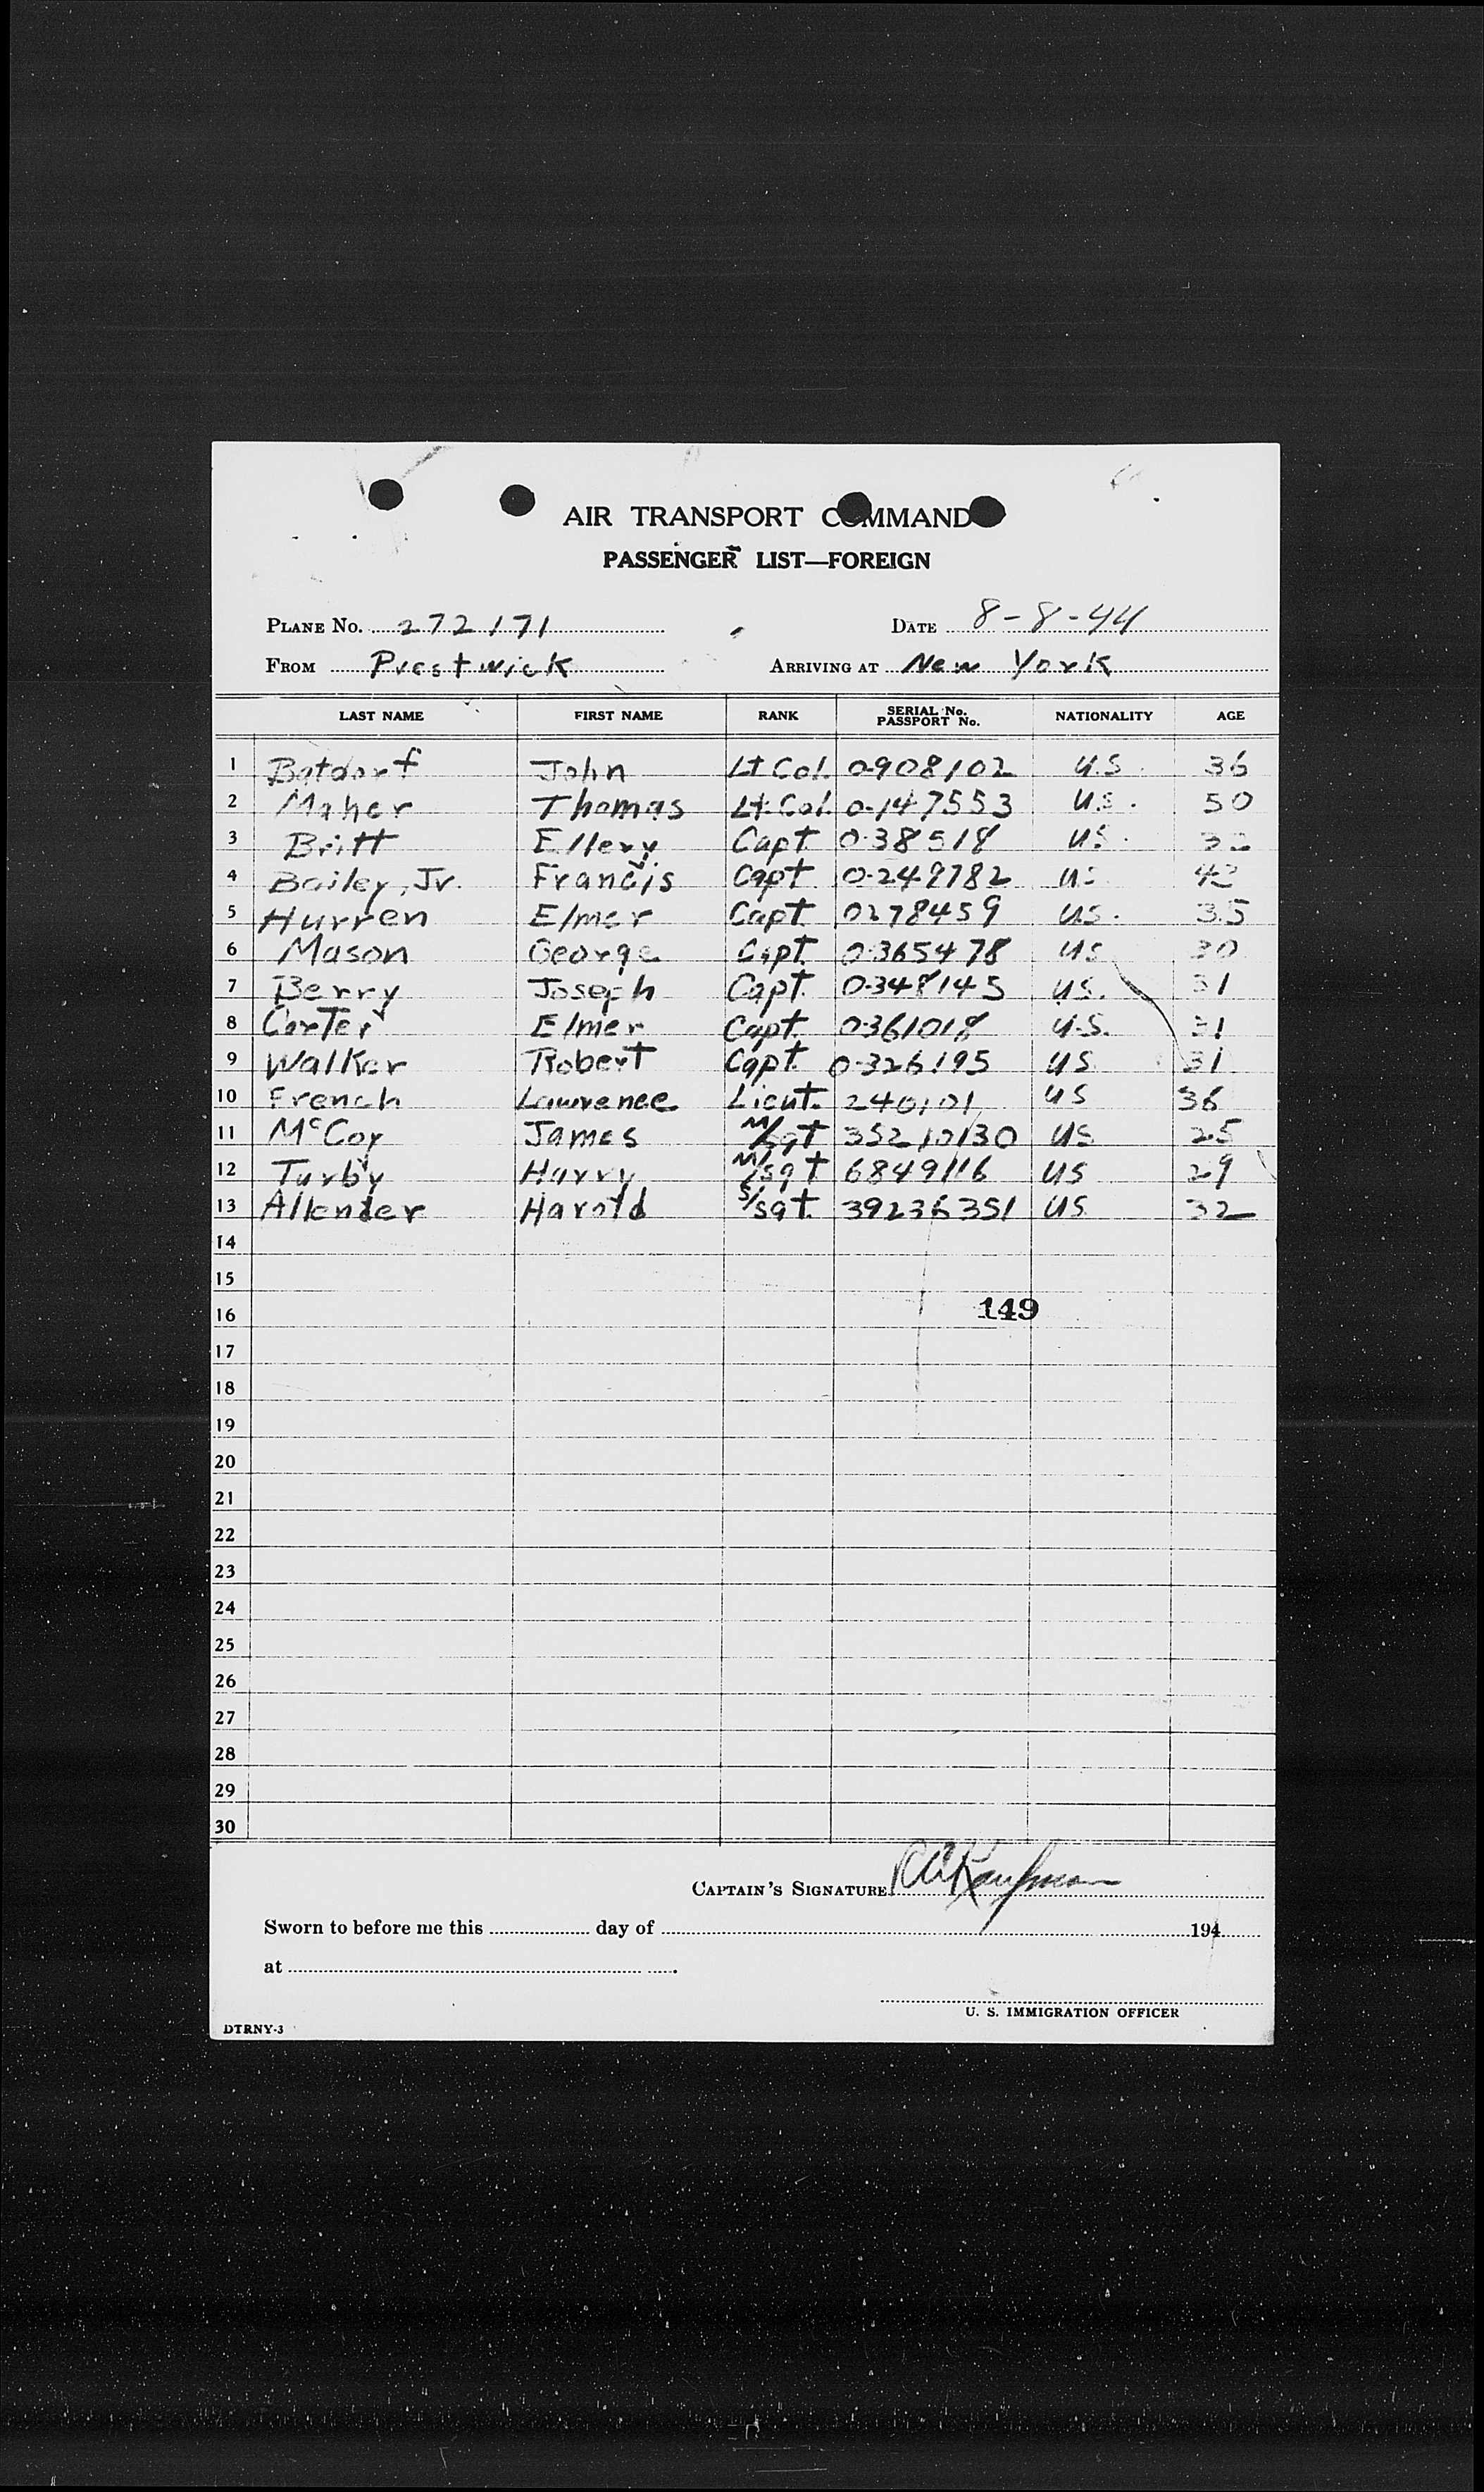 AIR TRANSPORT COMMAND
PASSENGER LIST—FOREIGN
PLANE No. 272171 DATE 8-8-44
FROM Prestwick ARRIVING AT New York
LAST NAME FIRST NAME RANK SERIAL No. PASSPORT No. NATIONALITY AGE
1 Batdorf John Lt Col. 0-908102 U.S. 36
2 Maher Thomas Lt. Col. 0-147553 U.S. 50
3 Britt Ellery Capt 0-38518 U.S.
4 Bailey, Jr. Francis Capt 0-249782 U.S. 42
5 Hurren Elmer Capt. 0278459 U.S. 35
6 Mason George Capt. 0-365478 US 30
7 Berry Joseph Capt. 0-348145 U.S. 31
8 Carter Elmer Capt. 0361018 U.S. 31
9 Walker Robert Capt. 0-326195 US 31
10 French Lawrence Lieut. 240101 US 36
11 McCoy James M/sgt 35210130 US 25
12 Turby Harry M/sgt 6849116 US 29
13 Allender Harold S/sgt. 39236351 US 32
14
15
16 149
17
18
19
20
21
22
23
24
25
26
27
28
29
30
CAPTAIN'S SIGNATURE R C Kaufman
Sworn to before me this day of 194
at
U. S. IMMIGRATION OFFICER
DTRNY-3